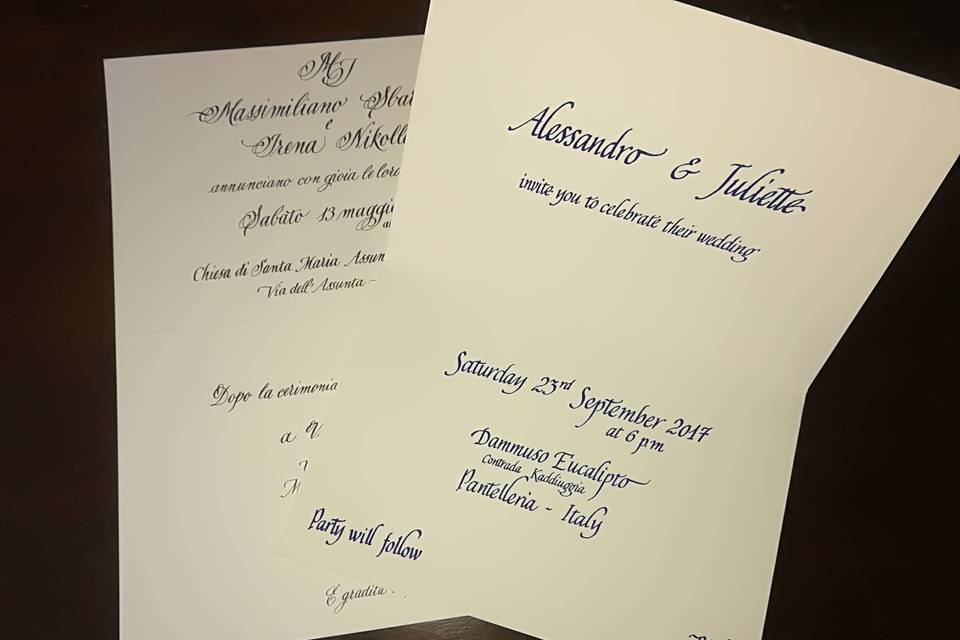 MJ
Massimiliano
e
Irena
annunciano con gioia le loro
Sabato 13
Chiesa di Santa Maria
Via dell'Assunta -
Dopo la cerimonia
a
È gradita
Alessandro & Juliette
invite you to celebrate their wedding
Saturday 23rd September 2017
at 6 pm
Dammuso Eucalipto
Contrada Kaddiuggia
Pantelleria - Italy
Party will follow